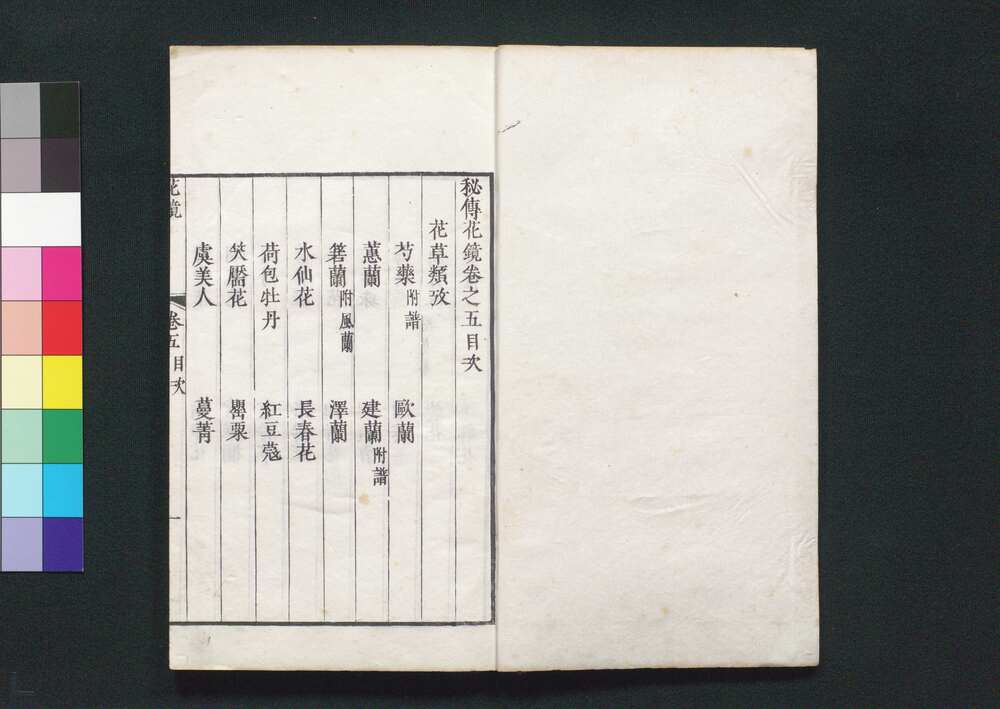 秘傳花鏡卷之五目次
花草類攷
芍藥附譜　歐蘭
蕙蘭　建蘭附譜
箬蘭附風蘭　澤蘭
水仙花　長春花
荷包牡丹　紅豆蔻
笑靨花　罌粟
虞美人　蔓菁
花鏡　卷五目次　一